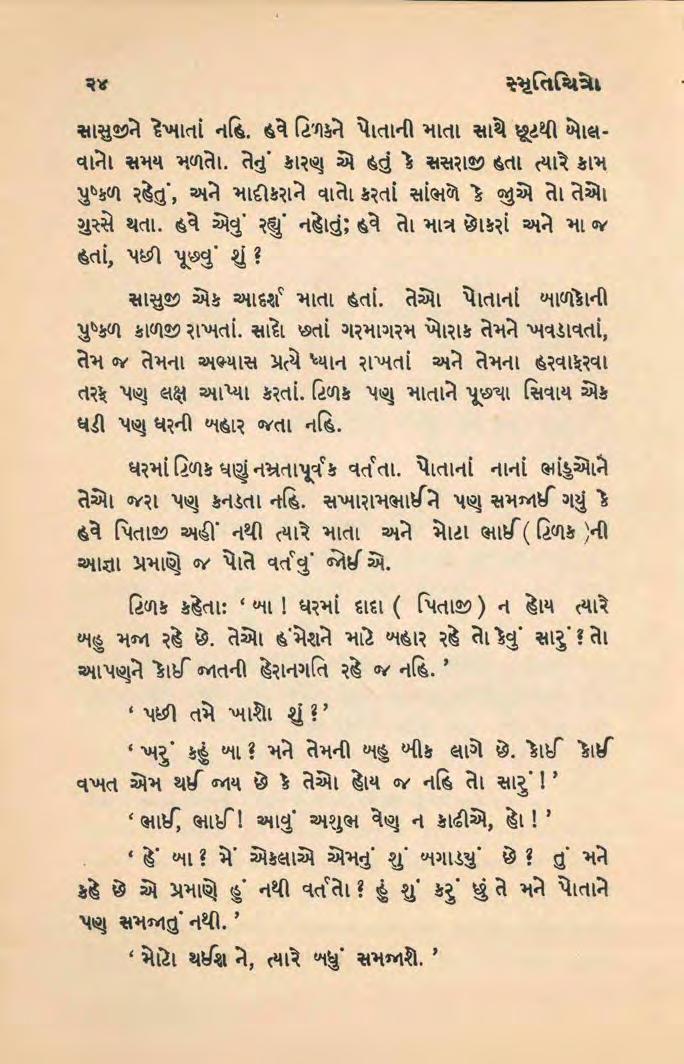 ૨૪ સ્મૃતિચિત્રો
સાસુજીને દેખાતાં નહિ. હવે ટિળકને પોતાની માતા સાથે છૂટથી બોલ-
વાનો સમય મળતો. તેનું કારણ એ હતું કે સસરાજી હતા ત્યારે કામ
પુષ્કળ રહેતું, અને માદીકરાને વાતો કરતાં સાંભળે કે જુએ તો તેઓ
ગુસ્સે થતા. હવે એવું રહ્યું નહોતું; હવે તો માત્ર છોકરાં અને મા જ
હતાં, પછી પૂછવું શું ?
સાસુજી એક આદર્શ માતા હતાં. તેઓ પોતાનાં બાળકોની
પુષ્કળ કાળજી રાખતાં. સાદો છતાં ગરમાગરમ ખોરાક તેમને ખવડાવતાં,
તેમ જ તેમના અભ્યાસ પ્રત્યે ધ્યાન રાખતાં અને તેમના હરવાફરવા
તરફ પણ લક્ષ આપ્યા કરતાં. ટિળક પણ માતાને પૂછ્યા સિવાય એક
ઘડી પણ ઘરની બહાર જતા નહિ.
ઘરમાં ટિળક ઘણું નમ્રતાપૂર્વક વર્તતા. પોતાનાં નાનાં ભાંડુઓને
તેઓ જરા પણ કનડતા નહિ. સખારામભાઈને પણ સમજાઈ ગયું કે
હવે પિતાજી અહીં નથી ત્યારે માતા અને મોટા ભાઈ ( ટિળક )ની
આજ્ઞા પ્રમાણે જ પોતે વર્તવું જોઈએ.
ટિળક કહેતા: ‘ બા ! ઘરમાં દાદા ( પિતાજી ) ન હોય ત્યારે
બહુ મજા રહે છે. તેઓ હંમેશને માટે બહાર રહે તો કેવું સારું ? તો
આપણને કોઈ જાતની હેરાનગતિ રહે જ નહિ. ’
‘ પછી તમે ખાશો શું ?’
‘ ખરું કહું બા ? મને તેમની બહુ બીક લાગે છે. કોઈ કોઈ
વખત એમ થઈ જાય છે કે તેઓ હોય જ નહિ તો સારું ! ’
‘ ભાઈ, ભાઈ ! આવું અશુભ વેણ ન કાઢીએ, હો ! ’
‘ હેં બા ? મેં એકલાએ એમનું શું બગાડયું છે ? તું મને
કહે છે એ પ્રમાણે હું નથી વર્તતો ? હું શું કરું છું તે મને પોતાને
પણ સમજાતું નથી. ’
‘ મોટો થઈશ ને, ત્યારે બધું સમજાશે. ’